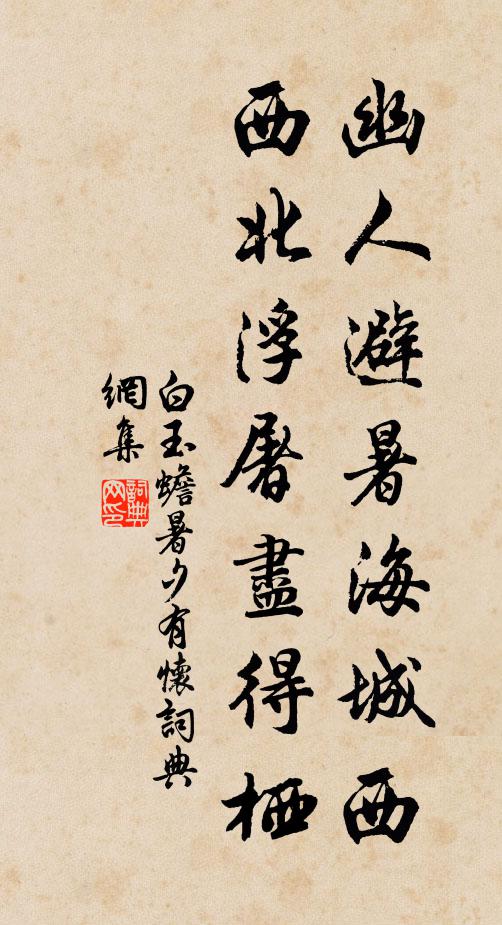 幽人避暑海城西
西北浮屠盡得栖
白玉蟾暑夕有懷詞典
網集
詞典
网印